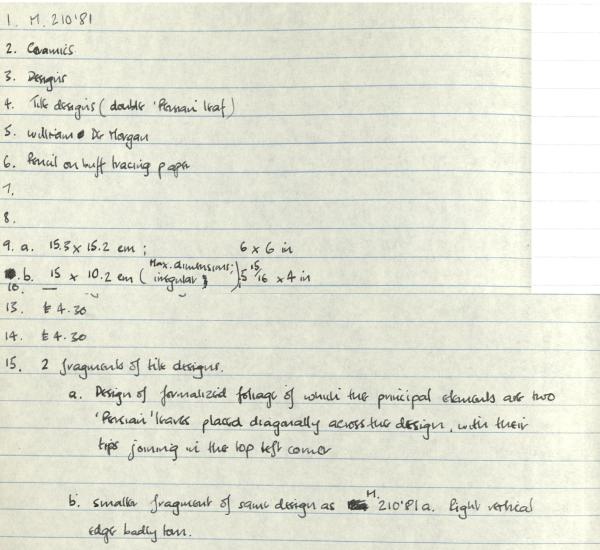 1. M. 210'81
2. Ceramics
3. Designs
4. Tile designs (double 'Persian' leaf)
5. William De Morgan
6. Pencil on buff tracing paper
7.
8.
9. a. 15.3 x 15.2 cm ; 6 x 6 in
b. 15 x 10.2 cm (Max. dimensions; irregular) 5 15/16 x 4 in
10. —
13. £4.30
14. £4.30
15. 2 fragments of tile designs.
a. Design of formalized foliage of which the principal elements are two
'Persian' leaves placed diagonally across the design, with their
tips joining in the top left corner
b. Smaller fragment of same design as M. 210'81a. Right vertical
edge badly torn.